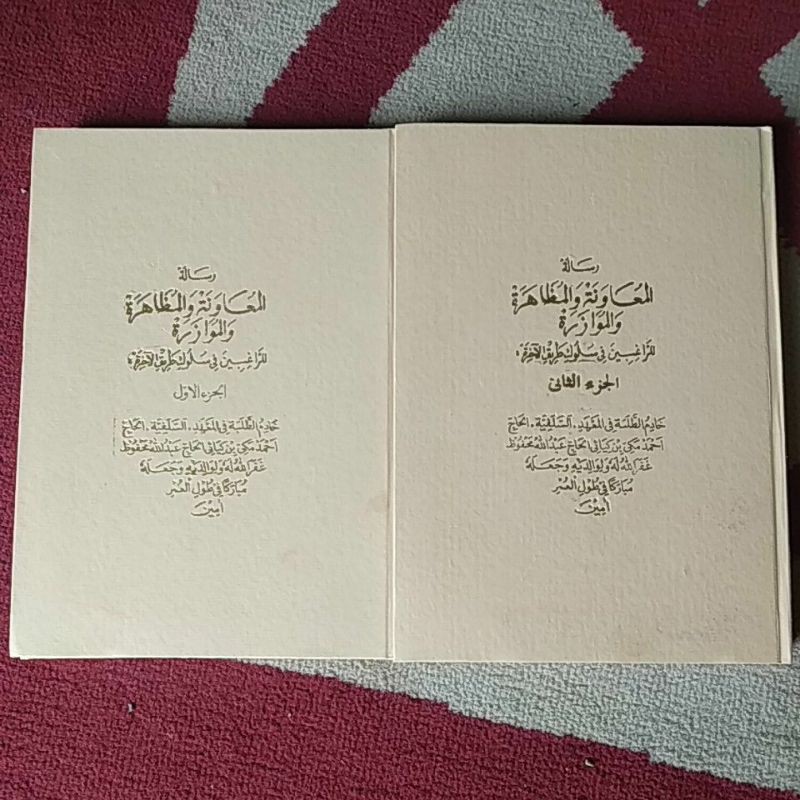 رسالة
المعاونة والمظاهرة
والموازرة
للراغبين في سلوك طريق الآخرة
الجزء الاول
خادم الطلبة في المعهد . السلفية . الحاج
احمد مكي بن كياهي الحاج عبدالله محفوظ
غفر الله له ولوالديه وجعله
مباركا في طول العمر
امين
رسالة
المعاونة والمظاهرة
والموازرة
للراغبين في سلوك طريق الآخرة
الجزء الثاني
خادم الطلبة في المعهد . السلفية . الحاج
احمد مكي بن كياهي الحاج عبدالله محفوظ
غفر الله له ولوالديه وجعله
مباركا في طول العمر
امين